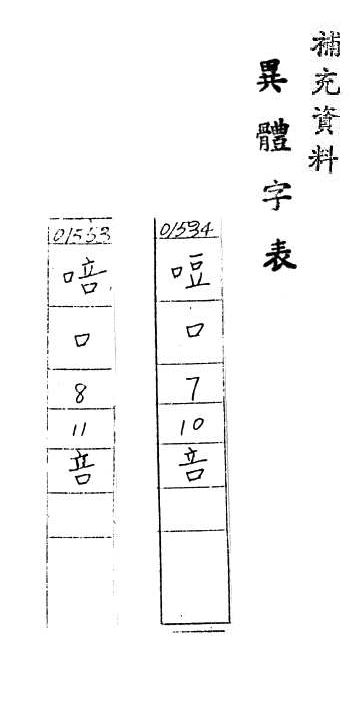 補充資料
異體字表
01534
哣
口
7
10
咅
01553
口
8
11
咅